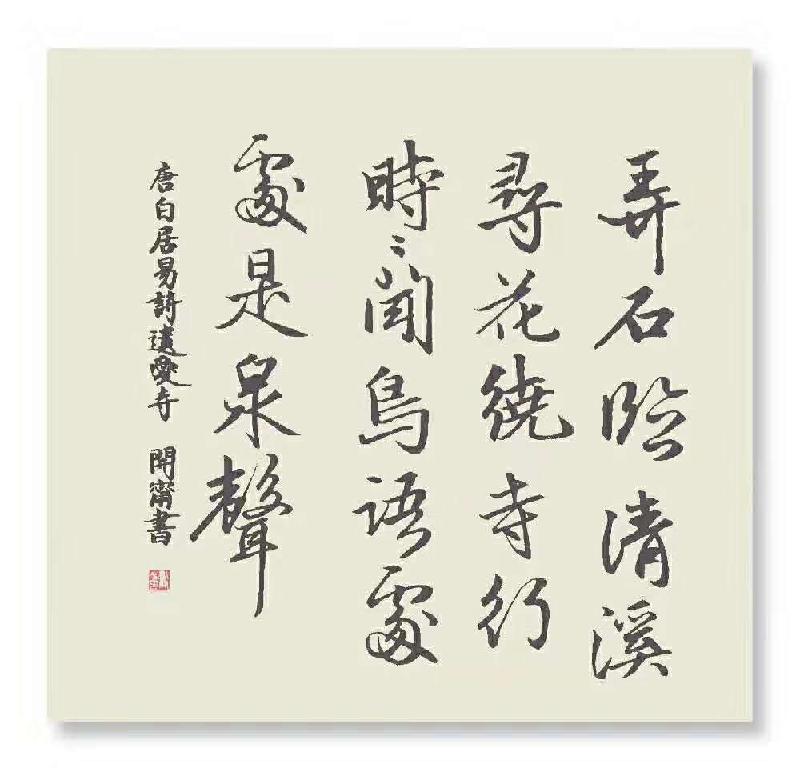 弄石臨清溪
尋花繞寺行
時〻聞鳥語處
處是泉聲
唐白居易詩遺愛寺 開齋書